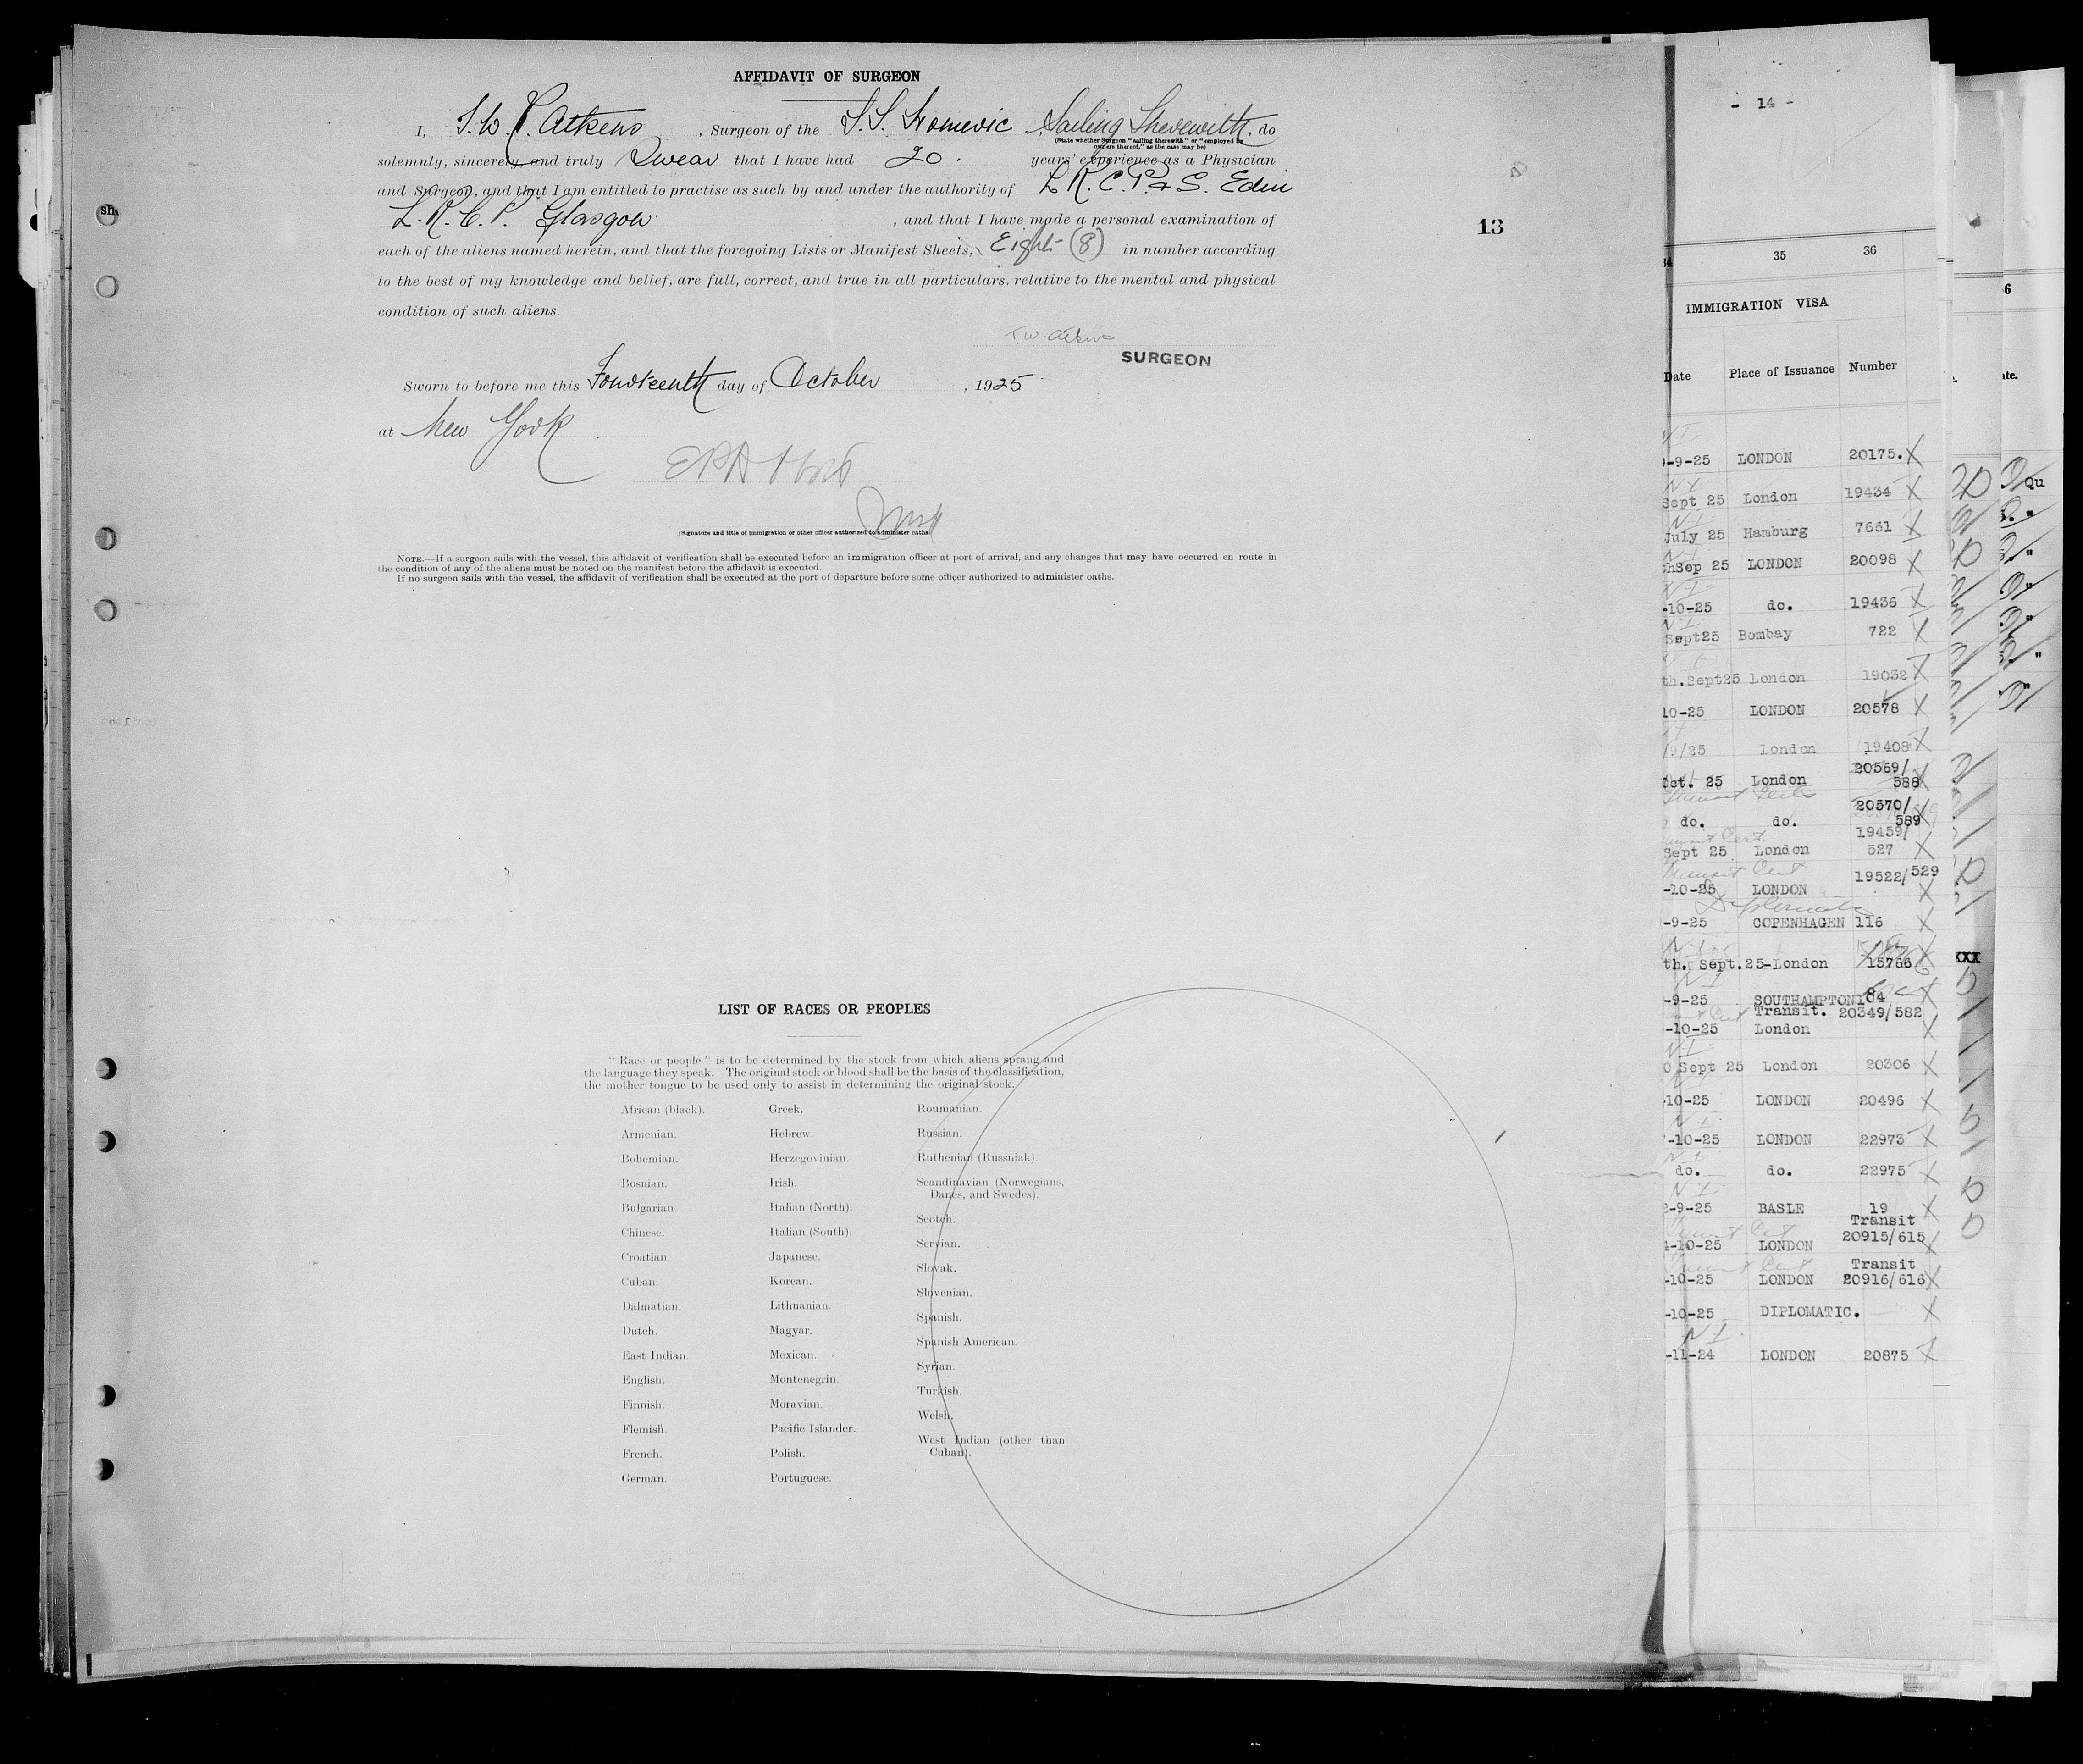 AFFIDAVIT OF SURGEON
I, T. W. P. Atkens, Surgeon of the S. S. Homeric Sailing Therewith, do
(State whether Surgeon "sailing therewith" or "employed by
owners thereof," as the case may be)
solemnly, sincerely, and truly Swear that I have had 20. years' experience as a Physician
and Surgeon, and that I am entitled to practise as such by and under the authority of L R. C. P. & S. Edin
L. R. C. P. Glasgow. , and that I have made a personal examination of
each of the aliens named herein, and that the foregoing Lists or Manifest Sheets, Eight (8) in number according
to the best of my knowledge and belief, are full, correct, and true in all particulars. relative to the mental and physical
condition of such aliens.
T. W. Atkins
SURGEON
Sworn to before me this Fourteenth day of October , 1925
at New York
(Signature and title of immigration or other officer authorized to administer oaths
NOTE.—If a surgeon sails with the vessel, this affidavit of verification shall be executed before an immigration officer at port of arrival, and any changes that may have occurred en route in
the condition of any of the aliens must be noted on the manifest before the affidavit is executed.
If no surgeon sails with the vessel, the affidavit of verification shall be executed at the port of departure before some officer authorized to administer oaths.
13
LIST OF RACES OR PEOPLES
"Race or people" is to be determined by the stock from which aliens sprang and
the language they speak. The original stock or blood shall be the basis of the classification,
the mother tongue to be used only to assist in determining the original stock.
African (black).
Armenian.
Bohemian.
Bosnian.
Bulgarian.
Chinese.
Croatian.
Cuban.
Dalmatian.
Dutch.
East Indian.
English.
Finnish.
Flemish.
French.
German.
Greek.
Hebrew.
Herzegovinian.
Irish.
Italian (North).
Italian (South).
Japanese.
Korean.
Lithuanian.
Magyar.
Mexican.
Montenegrin.
Moravian.
Pacific Islander.
Polish.
Portuguese.
Roumanian.
Russian.
Ruthenian (Russniak).
Scandinavian (Norwegians,
Danes, and Swedes).
Scotch.
Servian.
Slovak.
Slovenian.
Spanish.
Spanish American.
Syrian.
Turkish.
Welsh.
West Indian (other than
Cuban).
- 14 -
35 36
IMMIGRATION VISA
Date Place of Issuance Number
-9-25 LONDON 20175. X
Sept 25 London 19434 X
July 25 Hamburg 7661 X
Sep 25 LONDON 20098 X
-10-25 do. 19436 X
Sept25 Bombay 722 X
th.Sept25 London 19032 X
10-25 LONDON 20578 X
/9/25 London 19408 X
Oct. 25 London 20569/
588 X
do. do. 20570/
589 X
Sept 25 London 19459/
527 X
Transit Cert
-10-25 LONDON 19522/529 X
Diplomatic
-9-25 COPENHAGEN 116 X
th. Sept.25-London 15766 X
-9-25 SOUTHAMPTON 104 X
Transit. 20349/582
-10-25 London X
Sept 25 London 20306 X
10-25 LONDON 20496 X
-10-25 LONDON 22973 X
do. do. 22975 X
-9-25 BASLE 19 X
Transit
-10-25 LONDON 20915/615 X
Transit
-10-25 LONDON 20916/616 X
-10-25 DIPLOMATIC. X
-11-24 LONDON 20875 X
6
ate.
Qu
"
"
"
"
"
"
XXX